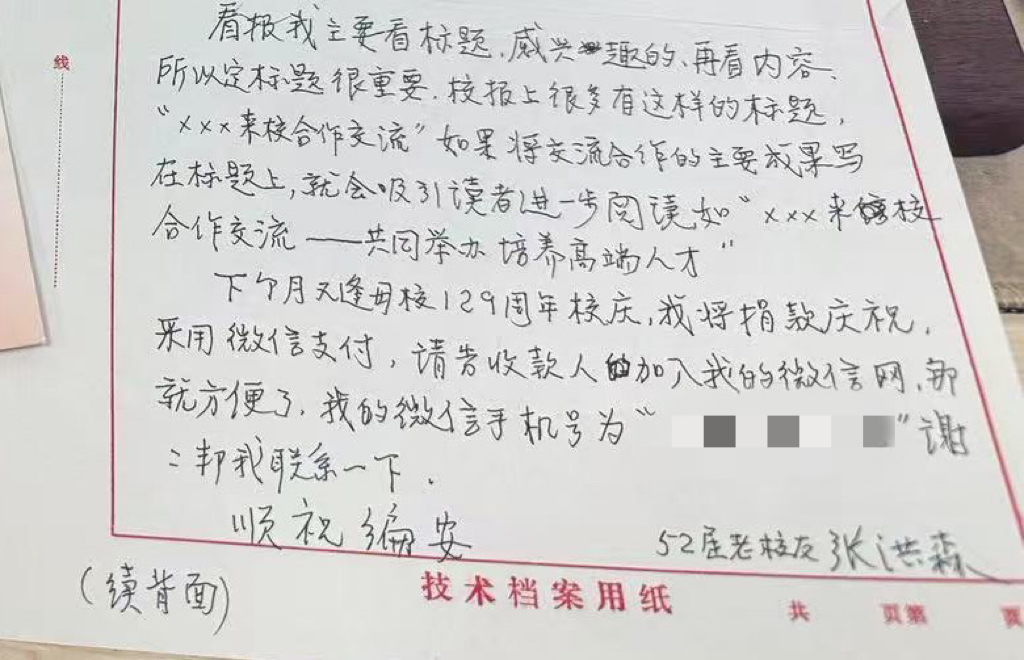 看报我主要看标题,感兴趣的、再看内容、
所以定标题很重要.校报上很多有这样的标题,
“×××来校合作交流”如果将交流合作的主要成果写
在标题上,就会吸引读者进一步阅读如“×××来校
合作交流——共同举办培养高端人才”
下个月又逢母校129周年校庆,我将捐款庆祝,
采用微信支付,请告收款人加入我的微信网,那
就方便了.我的微信手机号为“ ”谢
=帮我联系一下.
顺祝编安
52届老校友张洪森
(续背面)
线
技术档案用纸
共 页第 页